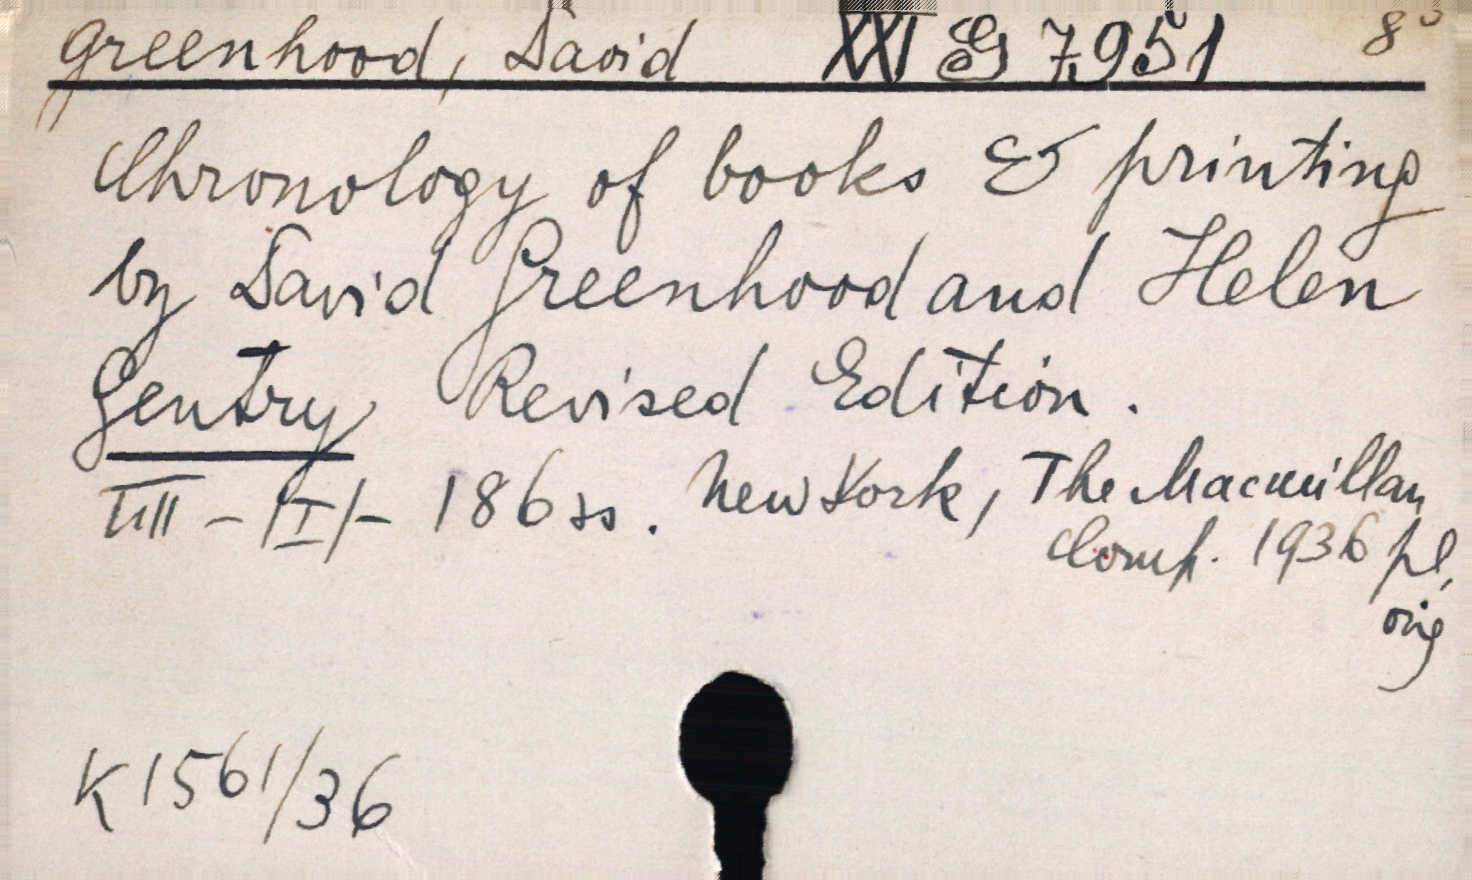 Greenhood, David XXI G 7951 8°
Chronology of books & printing
by David Greenhood and Helen
Gentry Revised Edition.
VIII - |I| - 186 ss. New York, The Macmillan
Comp. 1936 pl,
orig
K 1561/36